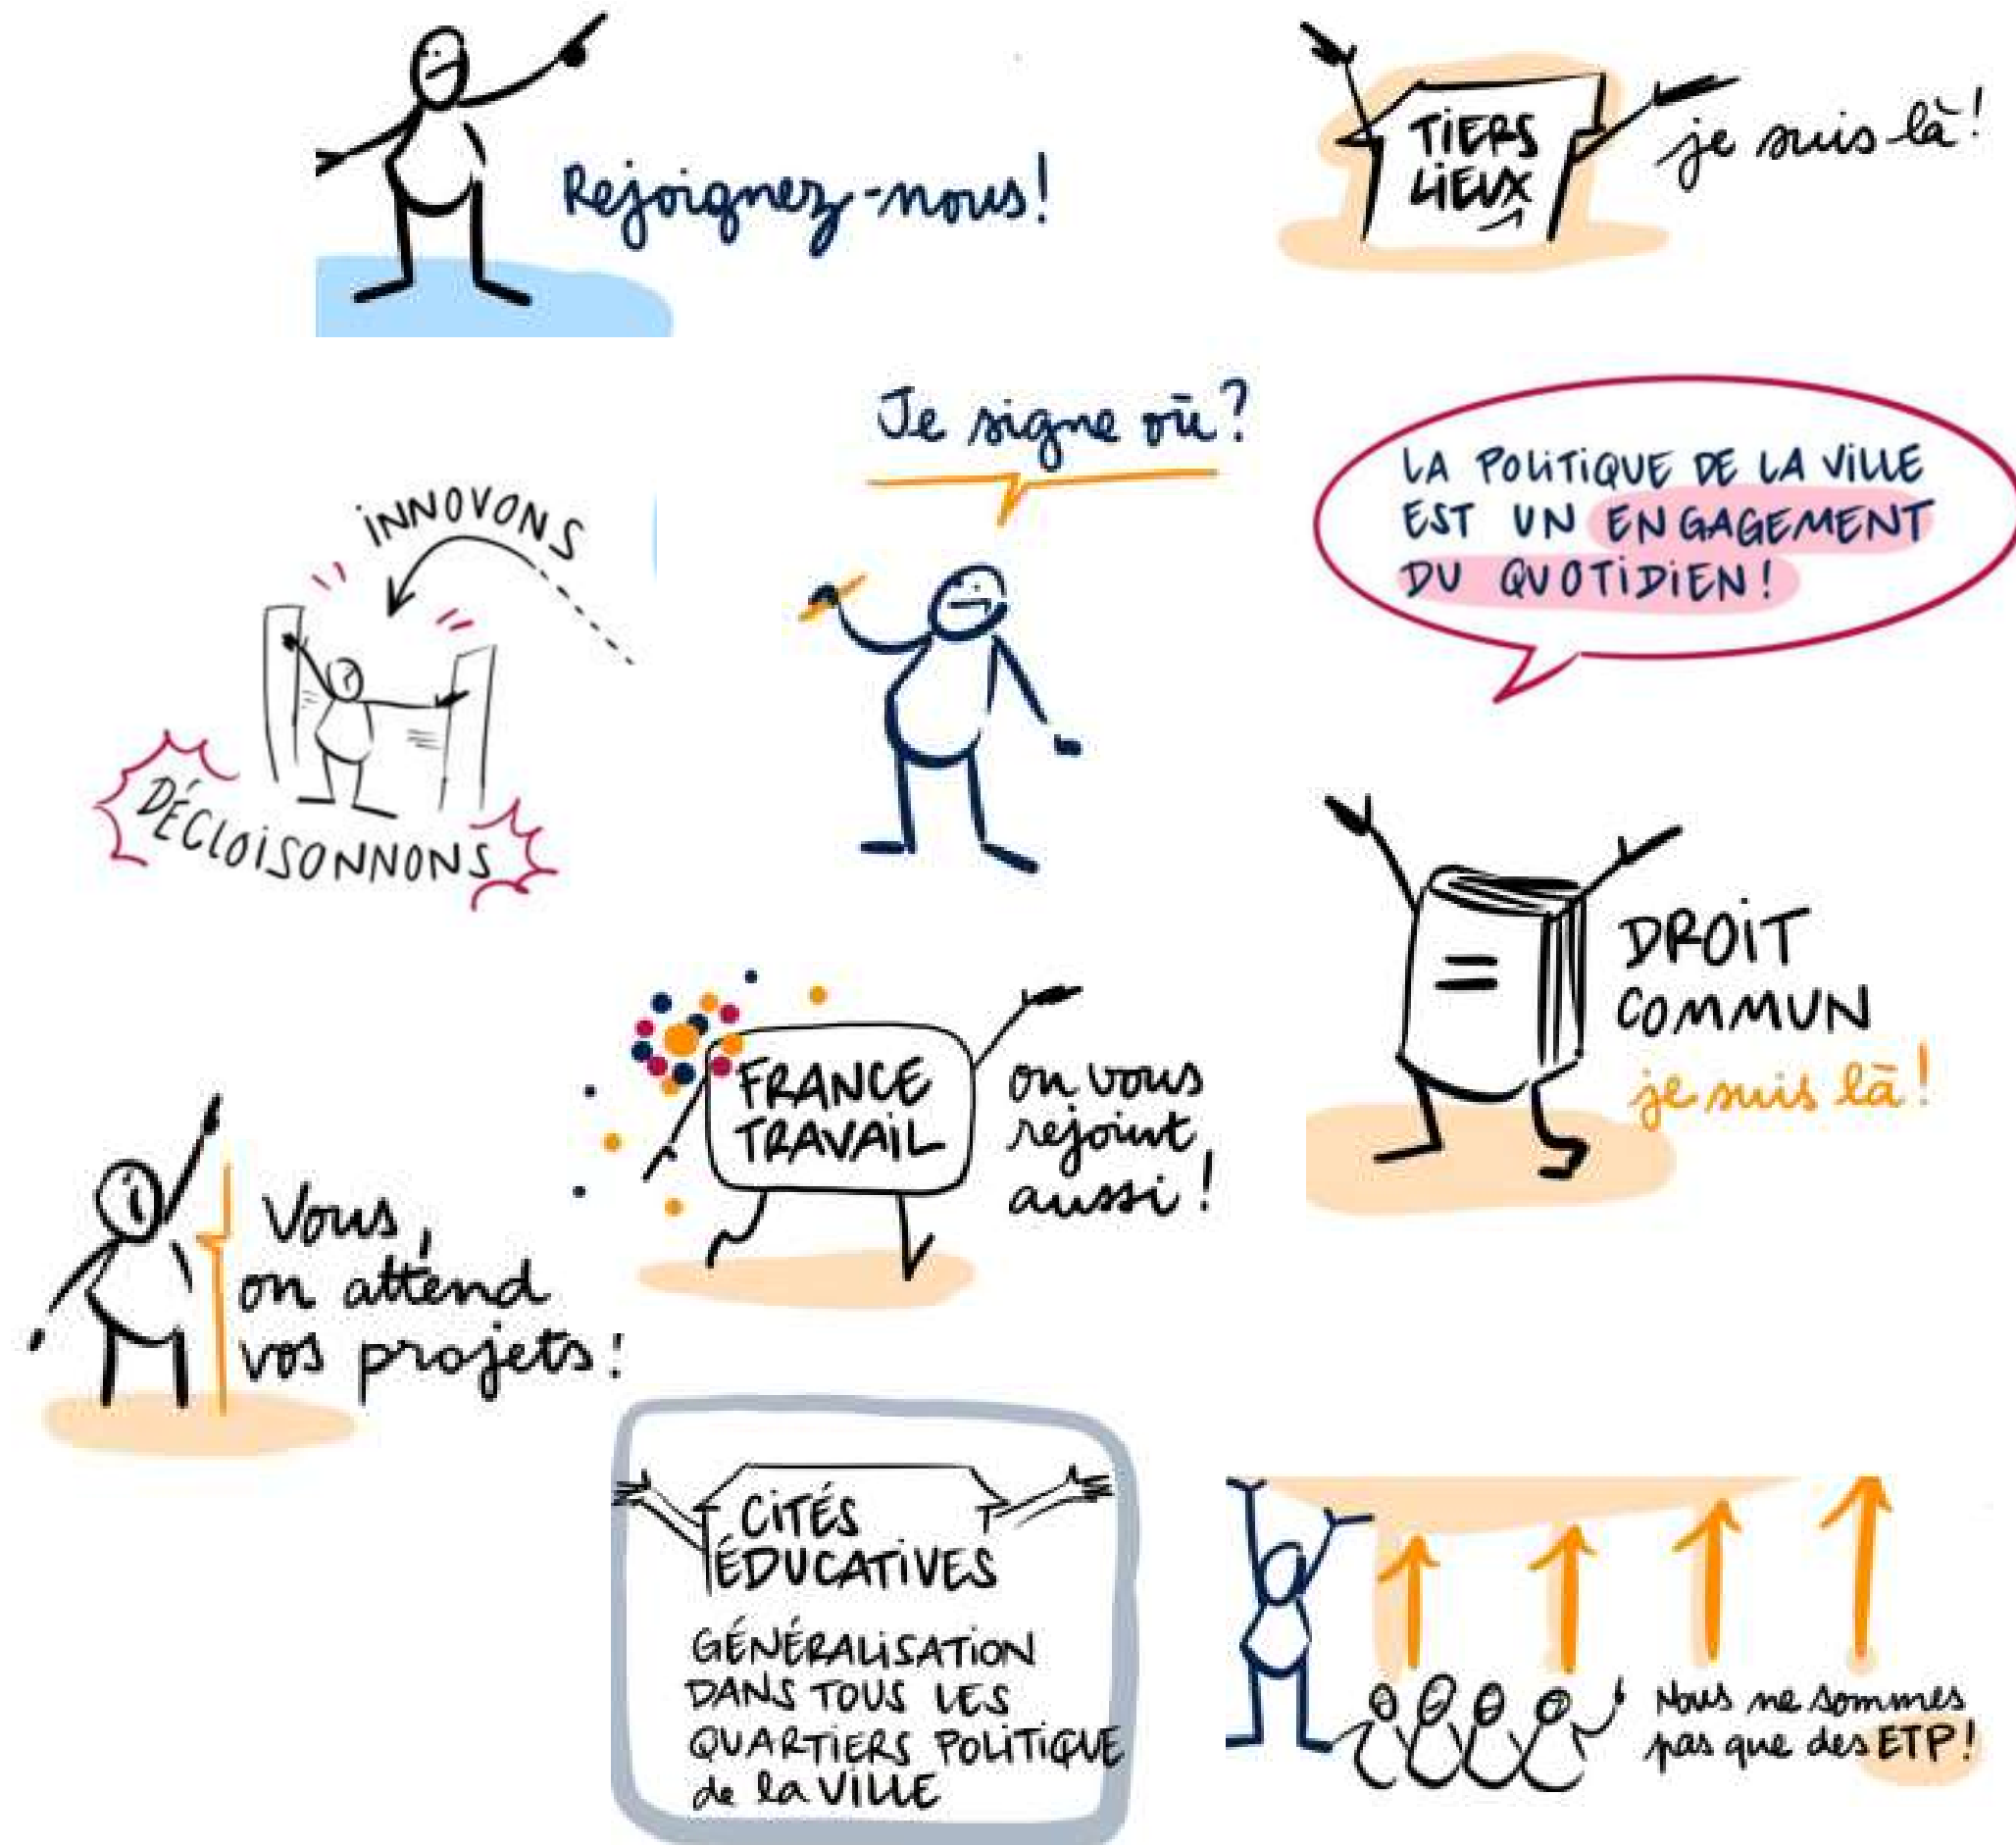 Rejoignez-nous!
TIERS
LIEUX
je suis là!
Je signe où?
LA POLITIQUE DE LA VILLE
EST UN ENGAGEMENT
DU QUOTIDIEN!
INNOVONS
DÉCLOISONNONS
DROIT
COMMUN
je suis là!
FRANCE
TRAVAIL
on vous
rejoint
aussi!
Vous,
on attend
vos projets!
CITÉS
ÉDUCATIVES
GÉNÉRALISATION
DANS TOUS LES
QUARTIERS POLITIQUE
de la VILLE
Nous ne sommes
pas que des ETP!